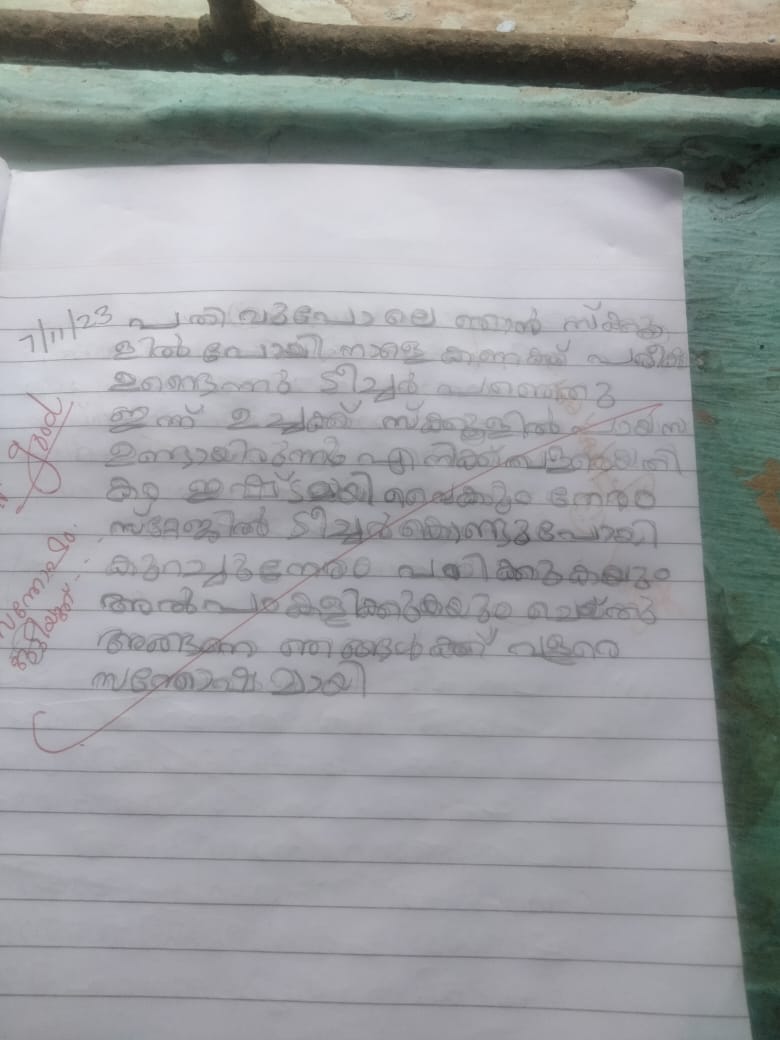 7/11/23 പതിവുപോലെ ഞാൻ സ്ക്കൂ
ളിൽ പോയി നാളെ കണക്ക് പരീക്ഷ
ഉണ്ടെന്നു ടീച്ചർ പറഞ്ഞു
ഇന്ന് ഉച്ചക്ക് സ്ക്കൂളിൽ പായസ
ഉണ്ടായിരുന്നു എനിക്ക് വളരെയധി
കം ഇഷ്ടമായി വൈകും നേരം
സ്റ്റേജിൽ ടീച്ചർ കൊണ്ടുപോയി
കുറച്ചുനേരം പഠിക്കുകയും
അൽപം കളിക്കുകയും ചെയ്തു
അങ്ങനെ ഞങ്ങൾക്ക് വളരെ
സന്തോഷമായി
good
സന്തോഷം